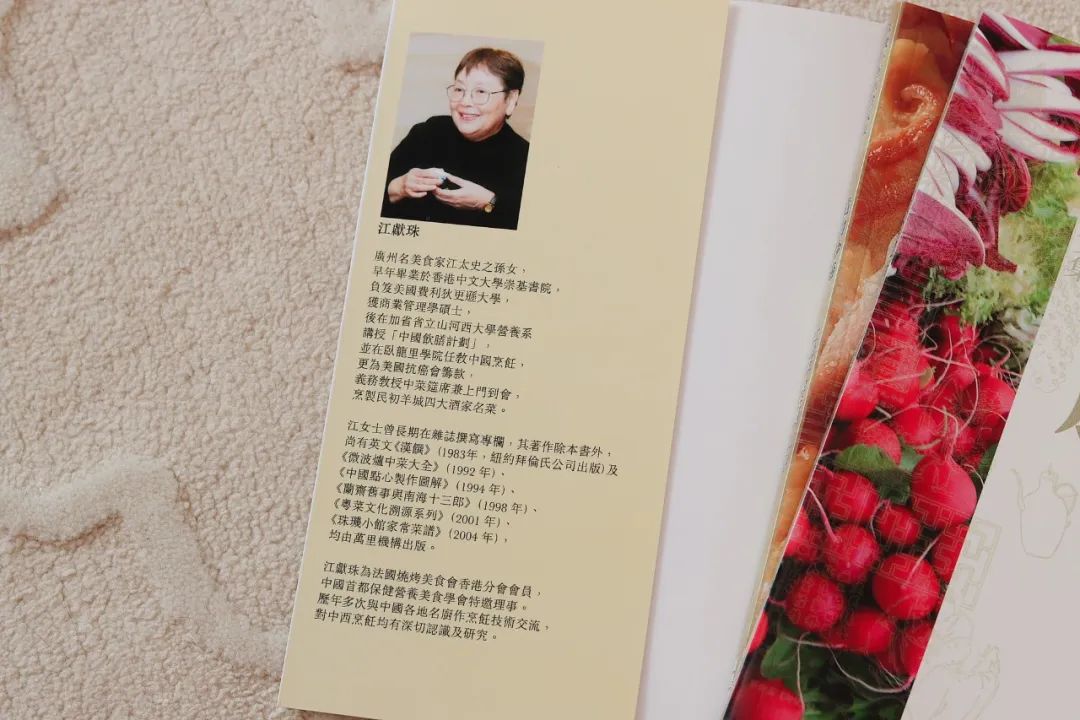 江獻珠
廣州名美食家江太史之孫女，
早年畢業於香港中文大學崇基書院，
負笈美國費利狄更遜大學，
獲商業管理學碩士，
後在加省省立山河西大學營養系
講授「中國飲膳計劃」，
並在臥龍里學院任教中國烹飪，
更為美國抗癌會籌款，
義務教授中菜筵席兼上門到會，
烹製民初羊城四大酒家名菜。
江女士曾長期在雜誌撰寫專欄，其著作除本書外，
尚有英文《漢饌》(1983年，紐約拜倫氏公司出版)及
《微波爐中菜大全》(1992 年)、
《中國點心製作圖解》(1994 年)、
《蘭齋舊事與南海十三郎》(1998 年)、
《粵菜文化溯源系列》(2001 年)、
《珠璣小館家常菜譜》(2004 年)，
均由萬里機構出版。
江獻珠為法國燒烤美食會香港分會會員，
中國首都保健營養美食學會特邀理事。
歷年多次與中國各地名廚作烹飪技術交流，
對中西烹飪均有深切認識及研究。